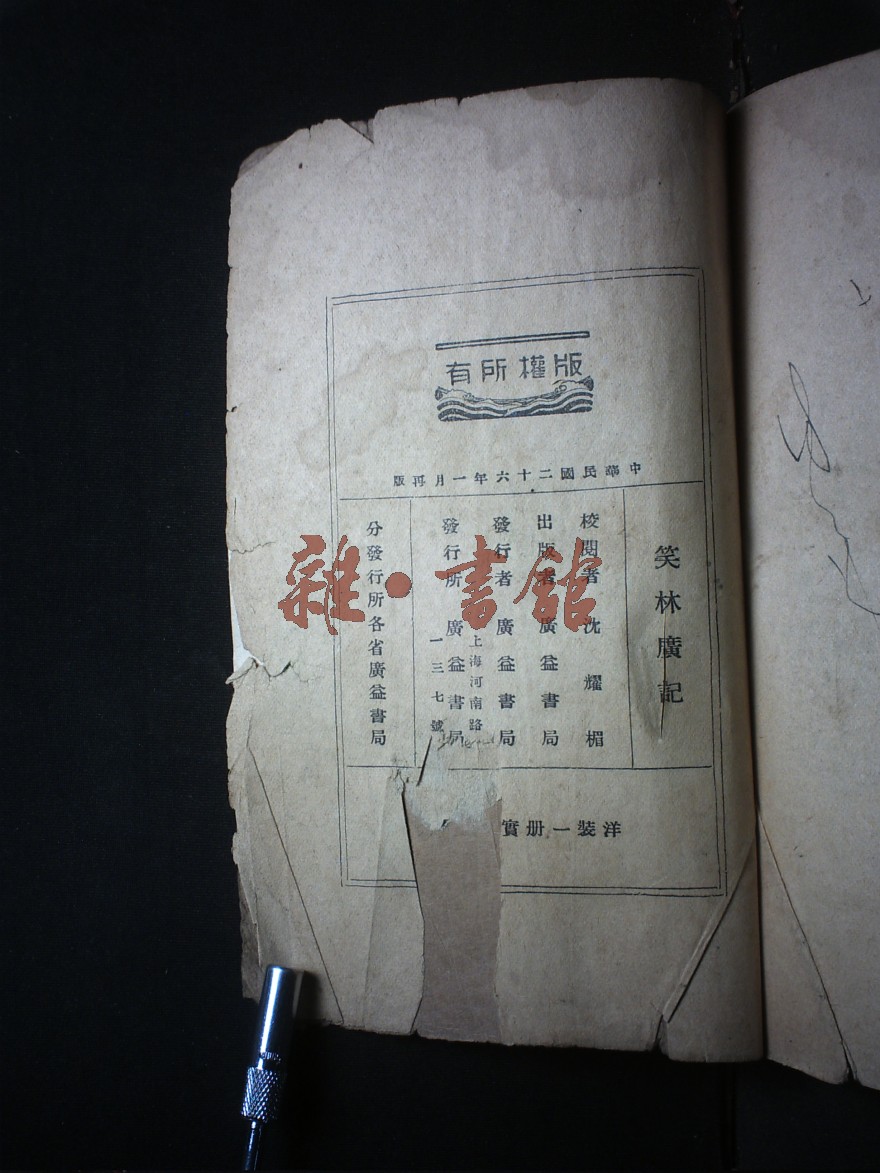 版權所有
中華民國二十六年一月再版
笑林廣記
校閱者 沈耀楣
出版者 廣益書局
發行者 廣益書局
上海河南路
發行所 廣益書局
一三七號
分發行所各省廣益書局
洋裝一册實
雜·書館